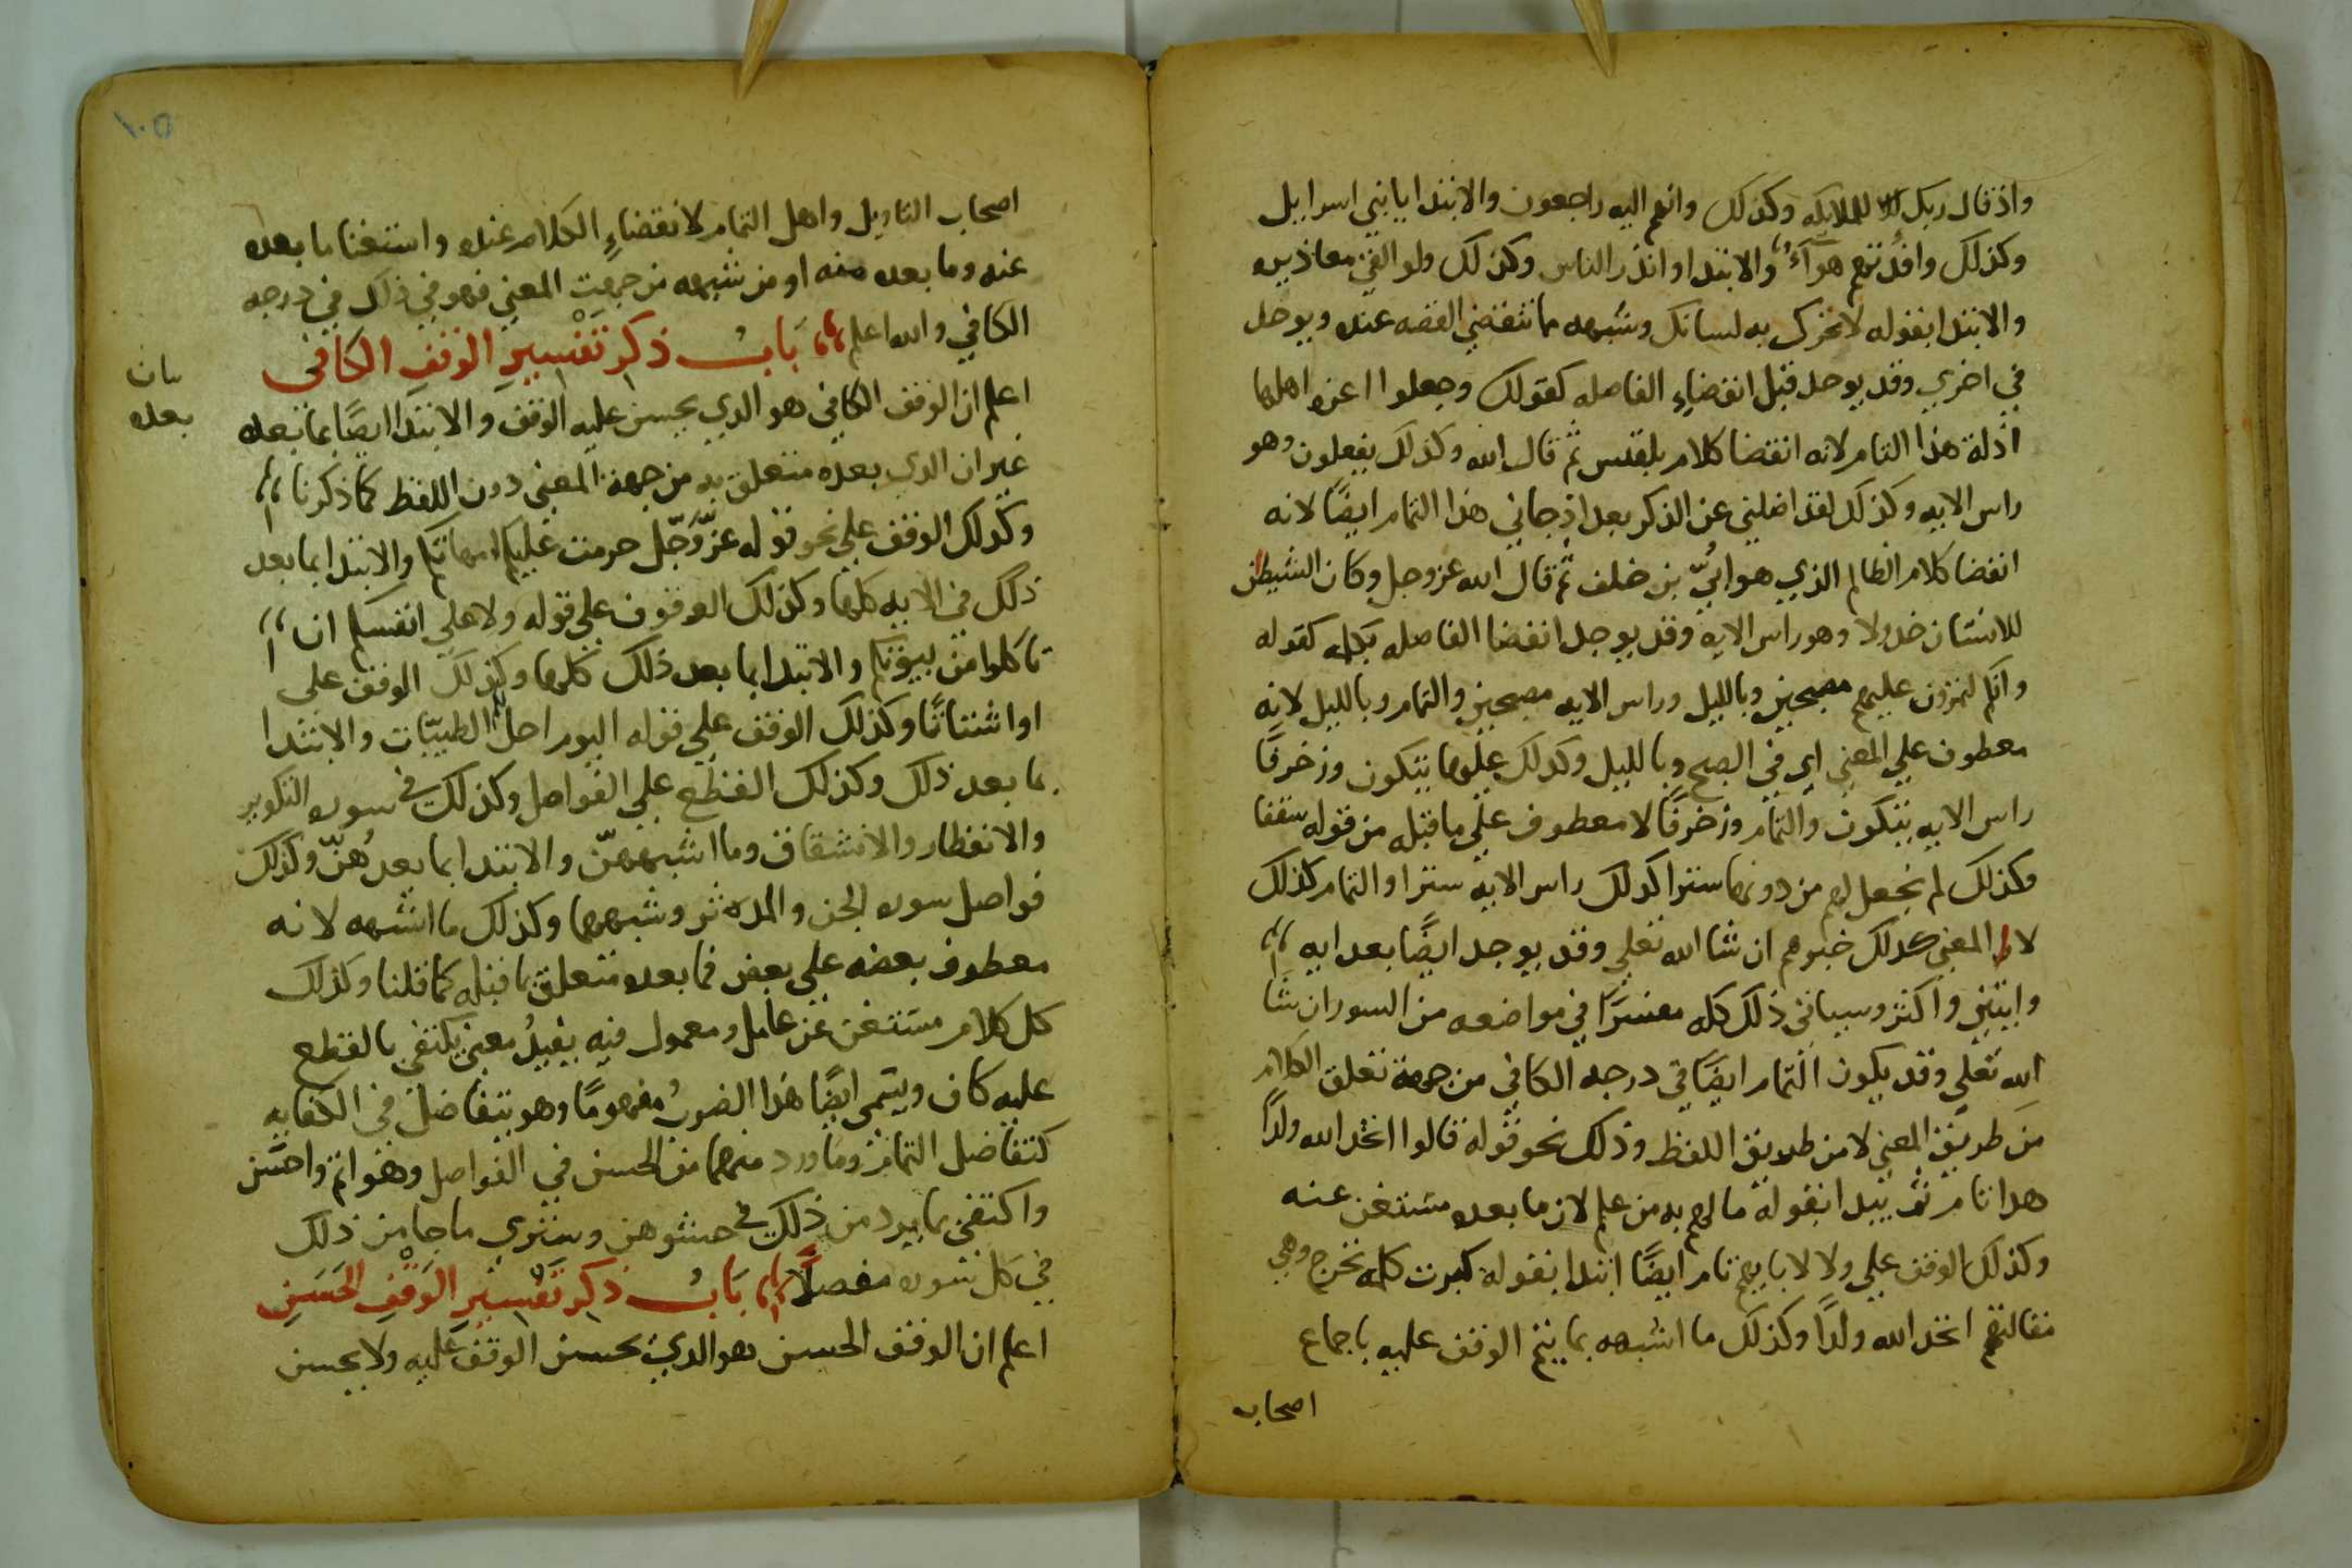 واذ قال ربك للملايكه وكذلك وانهم اليه راجعون والابتدا يابني اسرايل
وكذلك وافدتهم هوآءٌ والابتدا وانذر الناس وكذلك ولو القي معاذيره
والابتدا بقوله لاتحرك به لسانك وشبهه مما تنقضي القصه عنده ويوجد
في اخري وقد يوجد قبل انقضاءِ الفاصله كقولك وجعلوا اعزه اهلها
اذلة هذا التام لانه انقضا كلام بلقيس ثم قال الله وكذلك يفعلون وهو
راس الايه وكذلك لقد اضلني عن الذكر بعد اذ جاني هذا التمام ايضًا لانه
انقضا كلام الظالم الذي هو ابيّ بن خلف ثم قال الله عزوجل وكان الشيطن
للانسان خدولا وهو راس الايه وقد يوجد انقضا الفاصله كقوله
وانكم لتمرون عليهم مصبحين وبالليل وراس الايه مصبحين والتمام وبالليل لانه
معطوف علي المعني اي في الصبح وبالليل وكدلك عليها يتكون وزخرفًا
راس الايه يتكون والتمام وزخرفًا لا معطوف علي ما قبله من قوله سقفا
وكذلك لم نجعل لهم من دونها سترا كدلك راس الايه سترا والتمام كذلك
لان المعني كدلك خبرهم ان شا الله تعلي وقد يوجد ايضًا بعد ايه
وايتين واكثر وسياتي ذلك كله مفسرًا في مواضعه من السور ان شا
الله تعلي وقد يكون التمام ايضًا في درجه الكافي من جهة تعلق الكلام
من طريق المعني لا من طريق اللفظ وذلك نحو قوله قالوا اتخد الله ولدًا
هدا تام ثم يبدا بقوله ما لهم به من علم لان ما بعده مستغن عنه
وكذلك الوقف علي ولا لابايهم تام ايضًا ابتدا بقوله كبرت كلمه تخرج وهي
مقالتهم اتخد الله ولدًا وكذلك ما اشبهه بما يتم الوقف عليه باجماع
اصحاب
١٠٥
اصحاب التاويل واهل التمام لانقضاءِ الكلام عنده واستغنا ما بعده
عنه وما بعده منه او من شبهه من جهت المعني فهو في ذلك في درجه
الكافي والله اعلم بَابُ ذكر تَفْسِيرِ الوقفِ الكافى
اعلم ان الوقف الكافي هو الدي يحسن عليه الوقف والابتدا ايضًا بما بعده
غير ان الدي بعده متعلق به من جهة المعني دون اللفظ كما ذكرنا
وكدلك الوقف علي نحو قوله عزّ وَجَلّ حرمت عليكم امهاتكم والابتدا بما بعد
ذلك في الايه كلها وكذلك الوقوف علي قوله ولا علي انفسكم ان
تاكلوا من بيوتكم والابتدا بما بعد ذلك كلها وكذلك الوقف علي
او اشتاتًا وكذلك الوقف علي قوله اليوم احل الطيّبات والابتدا
بما بعد ذلك وكذلك القطع علي الفواصل وكذلك في سوره التكوير
والانفطار والانشقاق وما اشبههنّ والابتدا بما بعدهُنّ وكذلك
فواصل سوره الجن والمدثر وشبههما وكذلك ما اشبهه لانه
معطوف بعضه علي بعض فما بعده متعلق بما قبله كما قلنا وكذلك
كل كلام مستغن عن عامل ومعمول فيه يفيدُ معني يكتفي بالقطع
عليه كاف ويسمى ايضًا هذا الضربُ مفهومًا وهو يتفاضل في الكفايه
كتفاضل التمام وما ورد منهما من الحسن في الفواصل وهو اتم واحسن
واكتفي بما يرد من ذلك في حشوهن وستري ما جا من ذلك
في كل سوره مفصلًا بَابُ ذكر تَفْسِيرِ الوَقْفِ الحَسَنِ
اعلم ان الوقف الحسن هو الدي يحسن الوقف عليه ولا يحسن
بعده